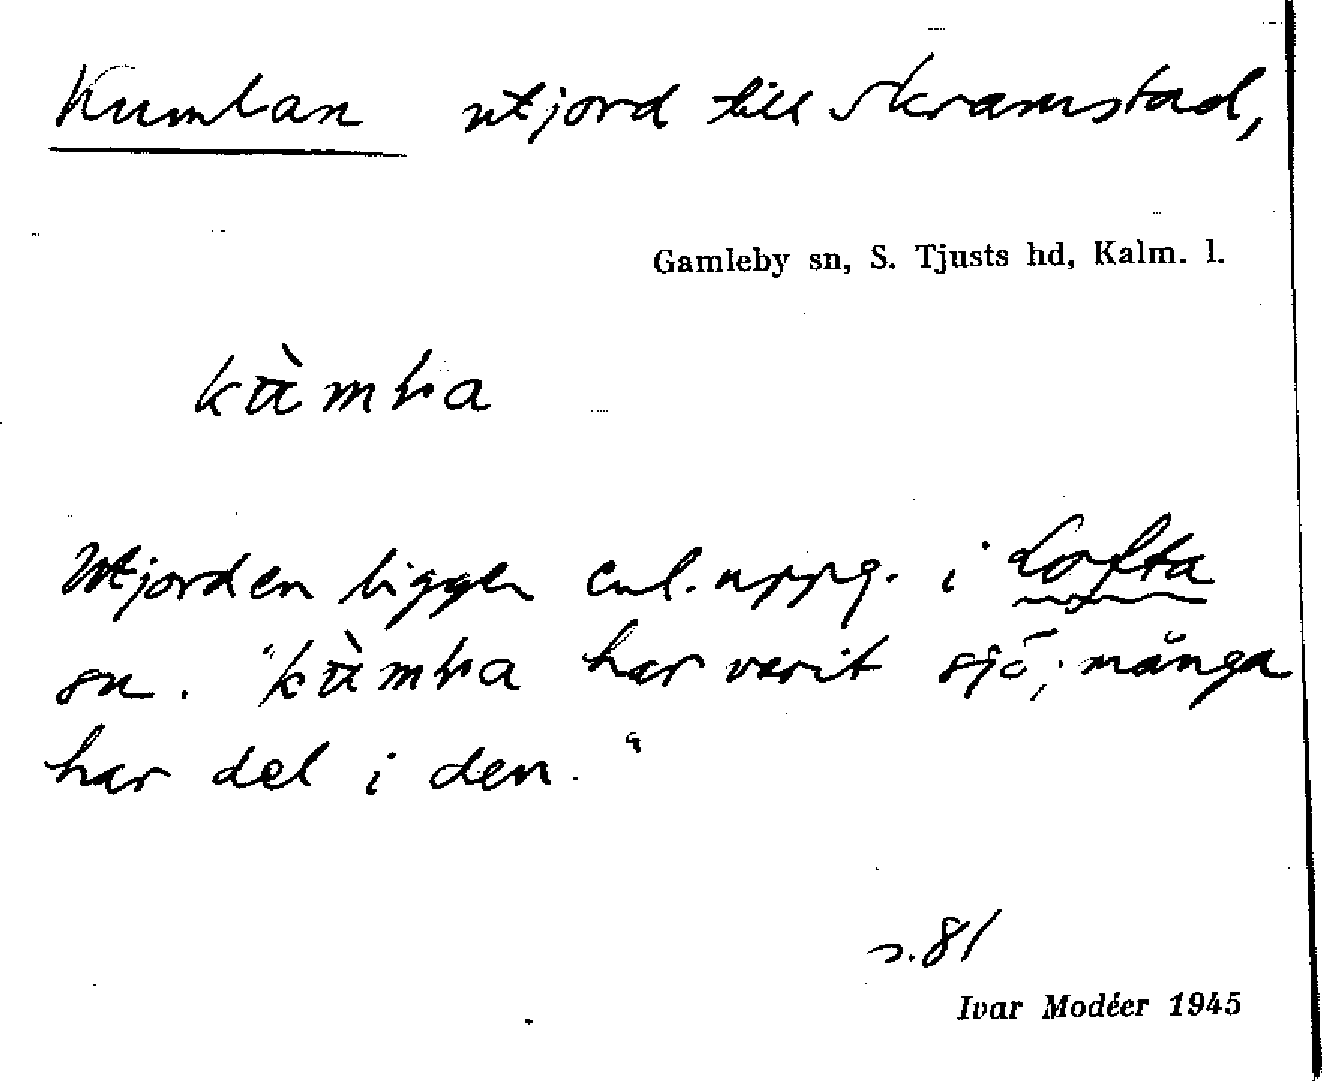 Kumlan utjord till Skramstad,
Gamleby sn, S. Tjusts hd, Kalm. l.
Utjorden ligger enl. uppg. i Lofta
sn. " har varit sjö; många
har del i den."
s. 81
Ivar Modéer 1945